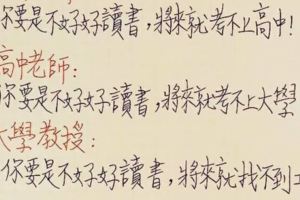 你要是不好好讀書,將來就考不上高中!
高中老師:
你要是不好好讀書,將來就考不上大學
大學教授:
你要是不好好讀書,將來就找不到